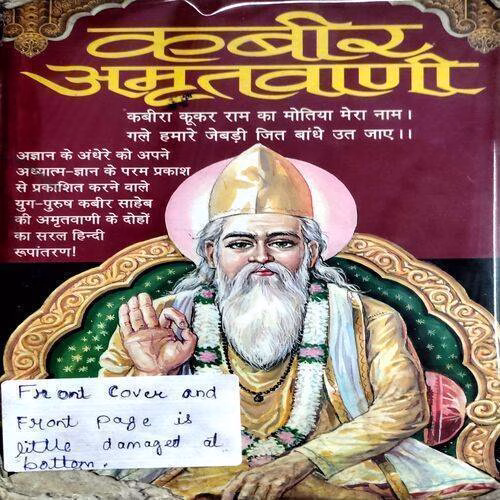 कबीर
अमृतवाणी
कबीरा कूकर राम का मोतिया मेरा नाम।
गले हमारे जेबड़ी जित बांधे उत जाए।।
अज्ञान के अंधेरे को अपने
अध्यात्म-ज्ञान के परम प्रकाश
से प्रकाशित करने वाले
युग-पुरुष कबीर साहेब
की अमृतवाणी के दोहों
का सरल हिन्दी
रूपांतरण!
Front Cover and
Front page is
little damaged at
bottom.